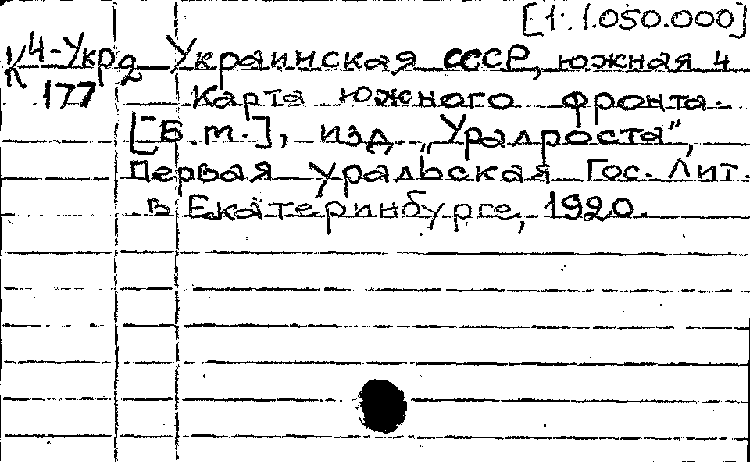 [1:1.050.000]
К 4-Укр2 Украинская СССР, южная ч
177 Карта южного фронта.
[Б.м.], изд. „Уралроста",
Первая уральская Гос. Лит.
в Екатеринбурге, 1920.